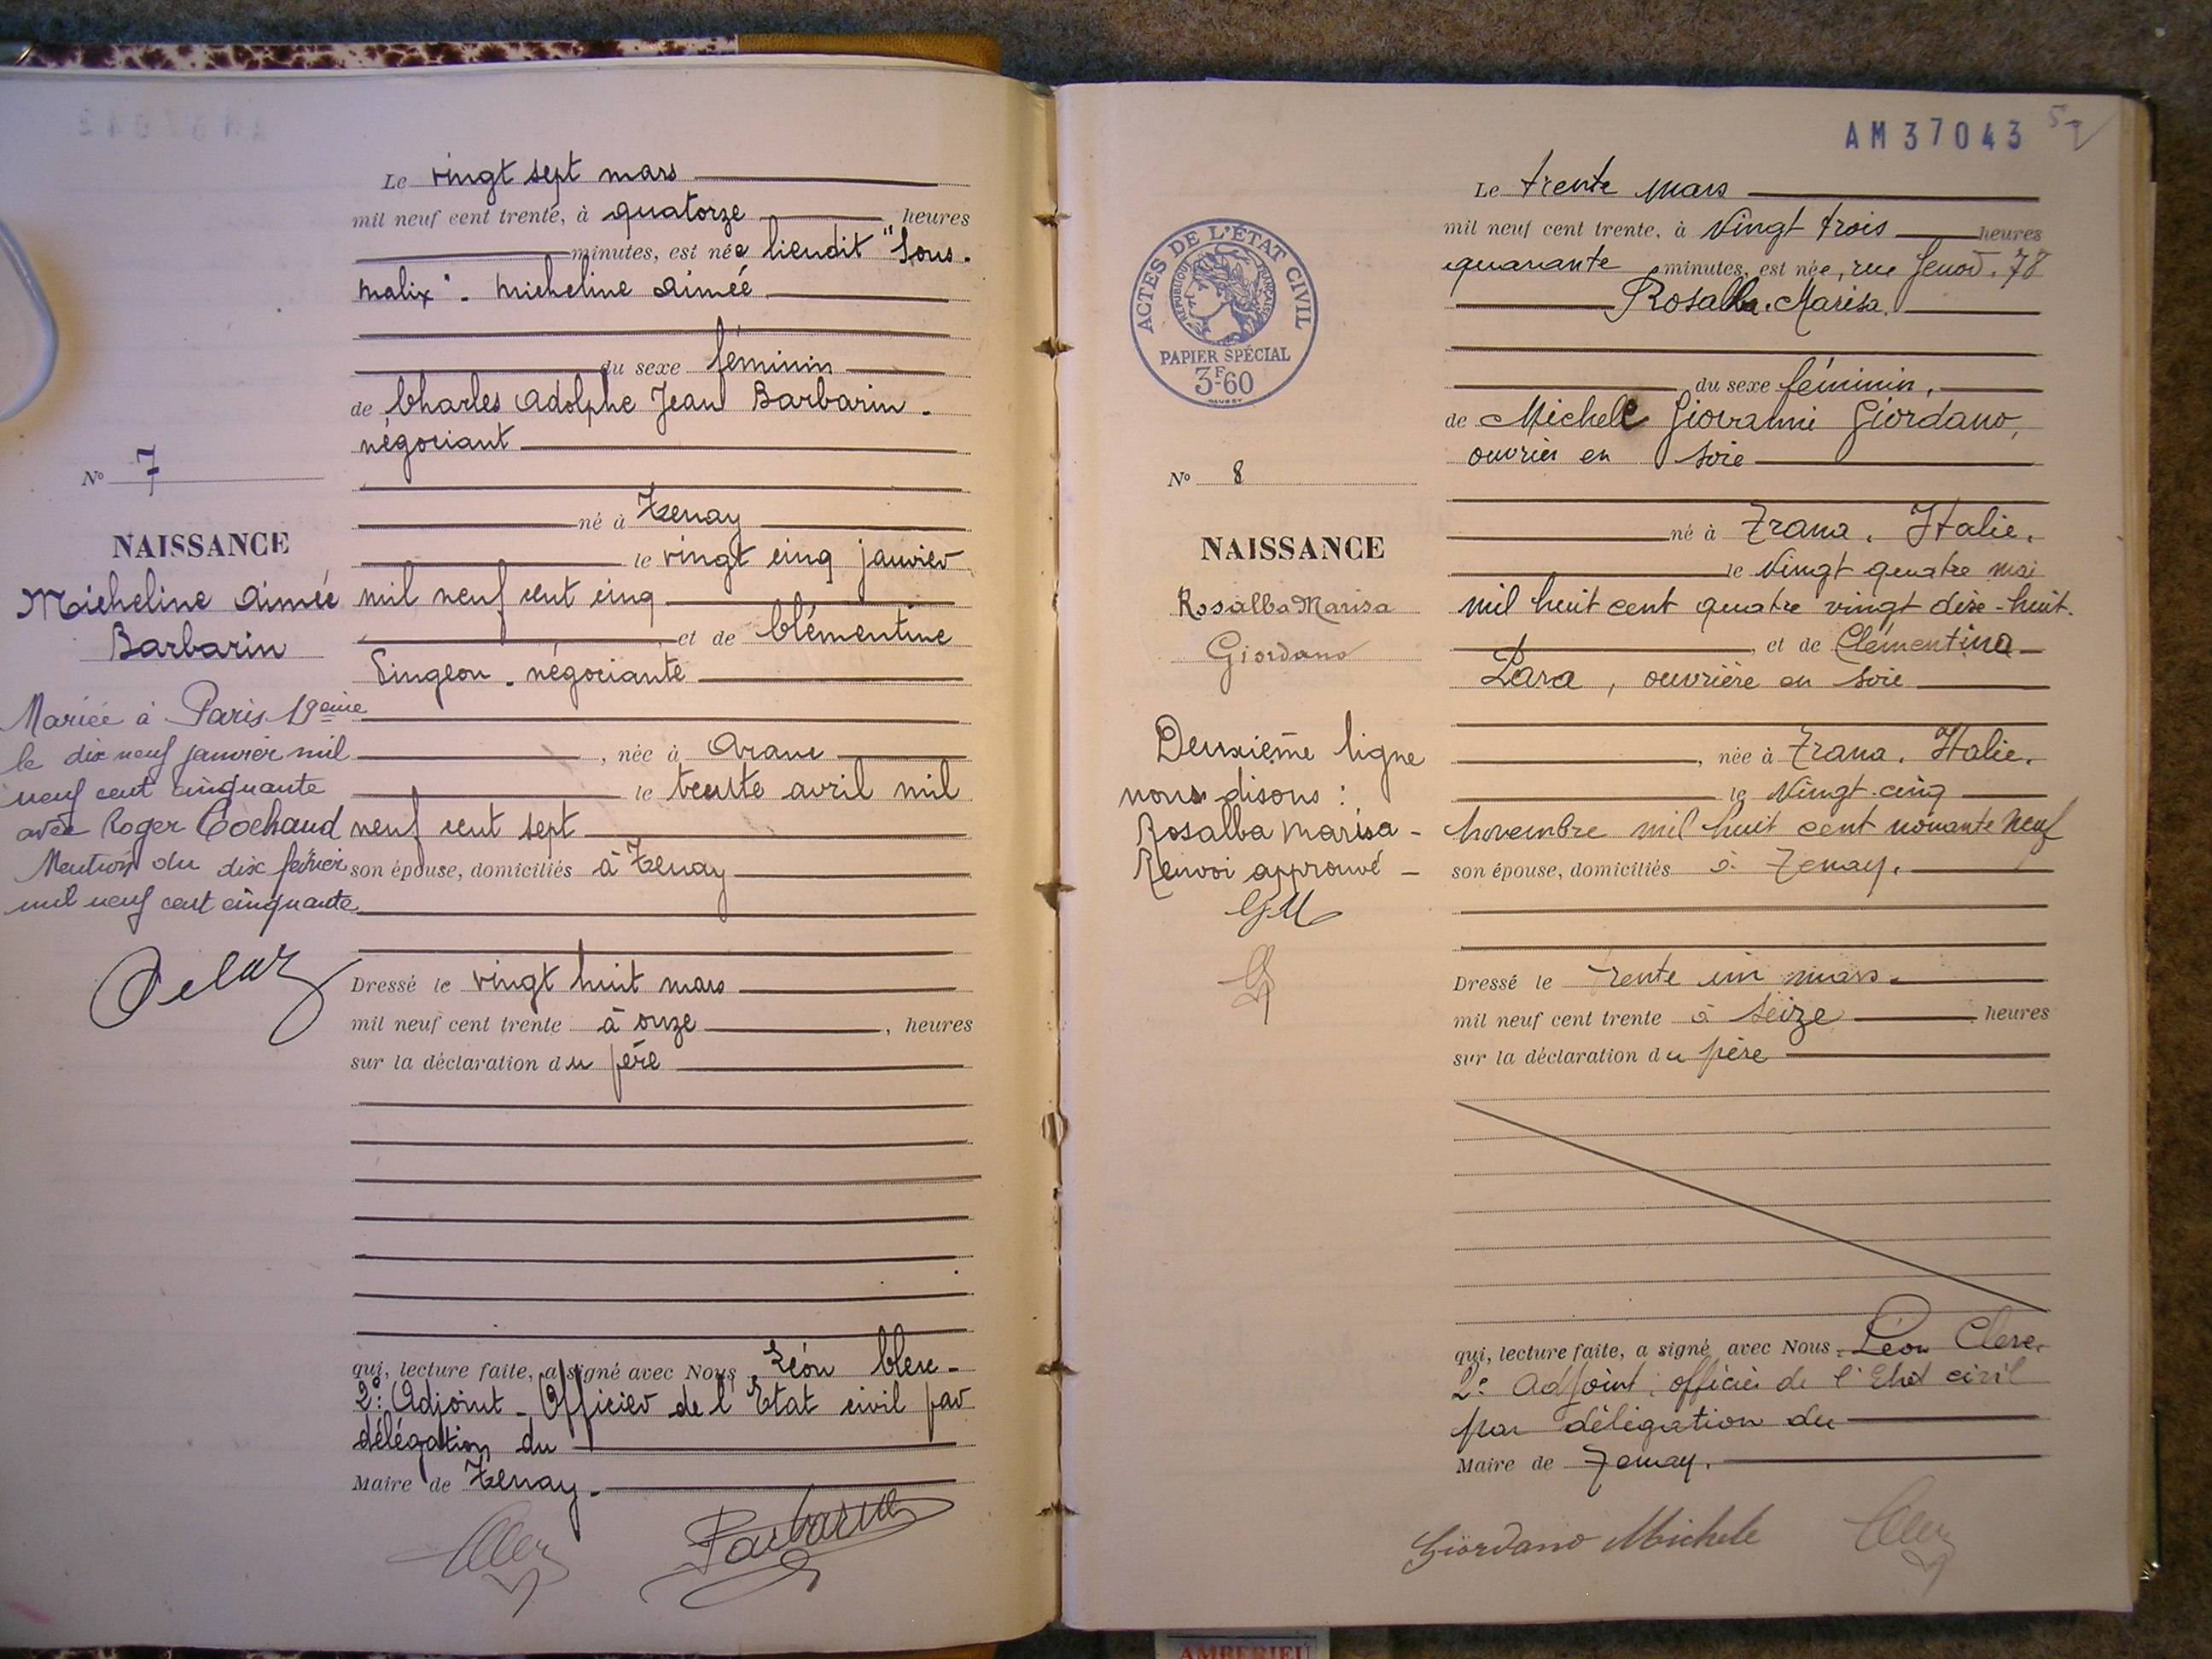 Le vingt sept mars
mil neuf cent trente, à quatorze heures
minutes, est née lieudit "Sous-
Malix". Micheline Aimée
du sexe féminin
de Charles Adolphe Jean Barbarin.
négociant
né à Tenay
le vingt cinq janvier
mil neuf cent cinq
et de Clémentine
Pingeon. négociante
, née à Aranc
le trente avril mil
neuf cent sept
son épouse, domiciliés à Tenay
Dressé le vingt huit mars
mil neuf cent trente à onze, heures
sur la déclaration du père
qui, lecture faite, a signé avec Nous Léon Clerc-
2e Adjoint - Officier de l'Etat civil par
délégation du
Maire de Tenay.
Barbarin
No 7
NAISSANCE
Micheline Aimée
Barbarin
Mariée à Paris 19ème
le dix neuf janvier mil
neuf cent cinquante
avec Roger Cochaud
Mention du dix février
mil neuf cent cinquante
AM37043
Le trente mars
mil neuf cent trente, à Vingt trois heures
quarante minutes, est née, rue Genod. 78
Rosalba. Marisa.
du sexe féminin.
de Michele Giovanni Giordano,
ouvrier en soie
né à Trana. Italie.
le Vingt quatre mai
mil huit cent quatre vingt dix-huit.
, et de Clémentina
Lara, ouvrière en soie
, née à Trana. Italie.
le Vingt-cinq
Novembre mil huit cent nonante neuf
son épouse, domiciliés à Tenay.
Dressé le trente un mars.
mil neuf cent trente à seize heures
sur la déclaration du père
qui, lecture faite, a signé avec Nous. Léon Clerc.
2e Adjoint, officier de l'Etat civil
par délégation du
Maire de Tenay.
Giordano Michele
ACTES DE L'ÉTAT CIVIL
RÉPUBLIQUE FRANÇAISE
PAPIER SPÉCIAL
3F60
No 8
NAISSANCE
Rosalba Marisa
Giordano
Deuxième ligne
nous disons :
Rosalba Marisa -
Renvoi approuvé -
GM
AMBERIEU